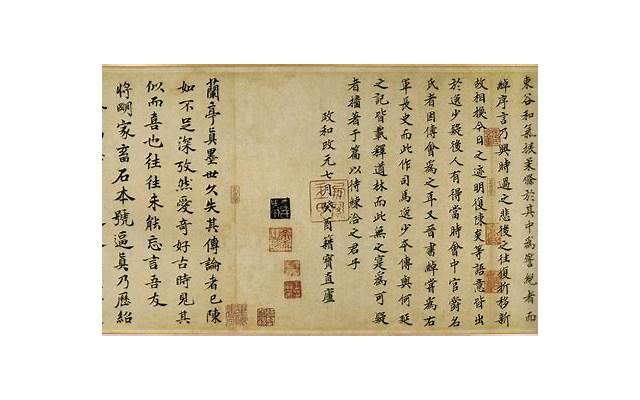 東谷和氣援筆條於其中為警絕者而
綽序言乃與時過之悲後之往復推移新
故相換今日之迹明復陳矣等語意皆出
於逸少疑後人有得當時會中官爵名
氏者因傅會為之耳又晉書綽嘗為右
軍長史而此作司馬逸少本傳與何延
之記皆載釋道林而此無之寔為可疑
者攟著于篇以待練洽之君子
政和改元七月癸酉籍寶直廬
蘭亭真墨世久失其傳論者已陳
如不足深攷然愛奇好古時見其
似而喜也往往未能忘言吾友
將明家畜石本號逼真乃歷紹